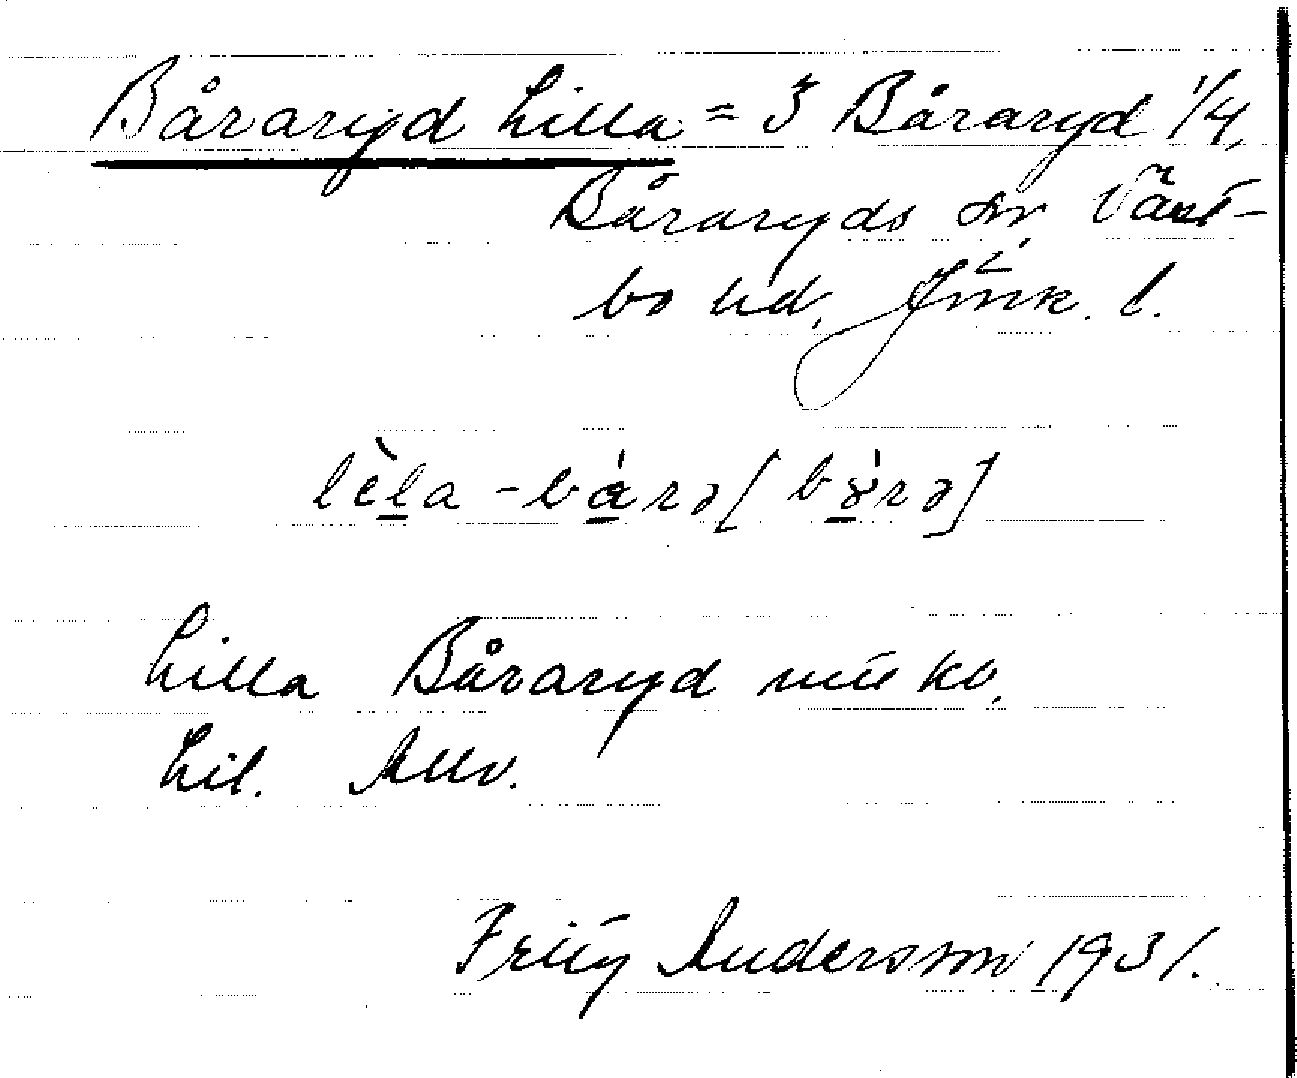 Båraryd Lilla = 3 Båraryd 1/4,
Båraryds sn, Väst-
bo hd, Jönk. l.
lèla - bárə [ bɤ́rə ]
Lilla Båraryd
hil. Allv.
Fritz Andersson 1931.